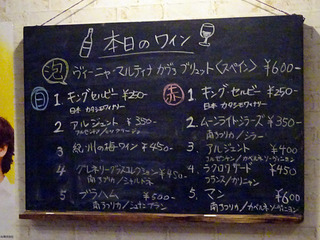 本日のワイン
泡 ヴィーニャ・マルティナ カヴァ ブリュット <スペイン> ¥600-
白
1 キングセルビー ¥250-
日本 カタシモワイナリー
2 アルジェント ¥350-
アルゼンチン/
3 紀ノ川の梅ワイン ¥450
4 グレネリーグラスコレクション ¥450.
南アフリカ/シャルドネ
5 ブラハム ¥500-
南アフリカ/シュナンブラン
赤
1. キングセルビー ¥250-
日本 カタシモワイナリー
2. ムーンライトシラーズ ¥350-
南アフリカ/シラー
3. アルジェント ¥400
アルゼンチン/カベルネソーヴィニヨン
4. ラクロワザード ¥450
フランス/カリニャン
5. マン ¥600
南アフリカ/カベルネソーヴィニヨン